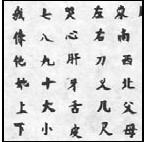 東南西北父母
左右刀叉几尺
哭心肝牙舌皮
七八九十大小
我他她上下